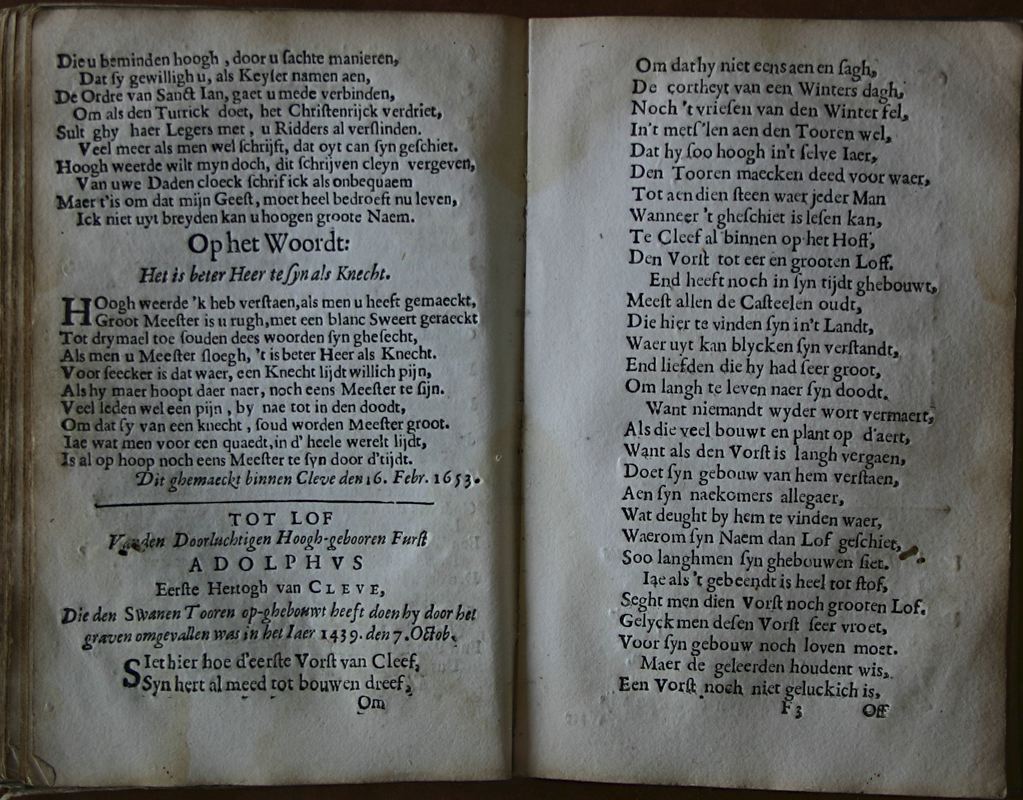 Die u beminden hoogh, door u ſachte manieren,
Dat ſy gewilligh u, als Keyſer namen aen,
De Ordre van Sanct Ian, gaet u mede verbinden,
Om als den Turrick doet, het Chriſtenrijck verdriet,
Sult ghy haer Legers met, u Ridders al verſlinden.
Veel meer als men wel ſchrijft, dat oyt can ſyn geſchiet.
Hoogh weerde wilt myn doch, dit ſchrijven cleyn vergeven,
Van uwe Daden cloeck ſchrif ick als onbequaem
Maer t'is om dat mijn Geeſt, moet heel bedroeft nu leven,
Ick niet uyt breyden kan u hoogen groote Naem.
Op het Woordt:
Het is beter Heer te ſyn als Knecht.
HOogh weerde 'k heb verſtaen, als men u heeft gemaeckt,
Groot Meeſter is u rugh, met een blanc Sweert geraeckt
Tot drymael toe ſouden dees woorden ſyn gheſecht,
Als men u Meeſter ſloegh, 't is beter Heer als Knecht.
Voor ſeecker is dat waer, een Knecht lijdt willich pijn,
Als hy maer hoopt daer naer, noch eens Meeſter te ſijn.
Veel leden wel een pijn, by nae tot in den doodt,
Om dat ſy van een knecht, ſoud worden Meeſter groot.
Iae wat men voor een quaedt, in d' heele werelt lijdt,
Is al op hoop noch eens Meeſter te ſyn door d'tijdt.
Dit ghemaeckt binnen Cleve den 16. Febr. 1653.
TOT LOF
Vanden Doorluchtigen Hoogh-gebooren Furſt
ADOLPHVS
Eerſte Hertogh van CLEVE,
Die den Swanen Tooren op-ghebouwt heeft doen hy door het
graven omgevallen was in het Iaer 1439. den 7. Octob.
SIet hier hoe d'eerſte Vorſt van Cleef,
Syn hert al meed tot bouwen dreef,
Om
Om dat hy niet eens aen en ſagh,
De cortheyt van een Winters dagh,
Noch 't vrieſen van den Winter fel,
In't metſ'len aen den Tooren wel,
Dat hy ſoo hoogh in't ſelve Iaer,
Den Tooren maecken deed voor waer,
Tot aen dien ſteen waer jeder Man
Wanneer 't gheſchiet is leſen kan,
Te Cleef al binnen op het Hoff,
Den Vorſt tot eer en grooten Loff.
End heeft noch in ſyn tijdt ghebouwt,
Meeſt allen de Caſteelen oudt,
Die hier te vinden ſyn in't Landt,
Waer uyt kan blycken ſyn verſtandt,
End liefden die hy had ſeer groot,
Om langh te leven naer ſyn doodt.
Want niemandt wyder wort vermaert,
Als die veel bouwt en plant op d'aert,
Want als den Vorſt is langh vergaen,
Doet ſyn gebouw van hem verſtaen,
Aen ſyn naekomers allegaer,
Wat deught by hem te vinden waer,
Waerom ſyn Naem dan Lof geſchiet,
Soo langhmen ſyn ghebouwen ſiet.
Iae als 't gebeendt is heel tot ſtof,
Seght men dien Vorſt noch grooten Lof.
Gelyck men deſen Vorſt ſeer vroet,
Voor ſyn gebouw noch loven moet.
Maer de geleerden houdent wis,
Een Vorſt noch niet geluckich is,
F 3
Off